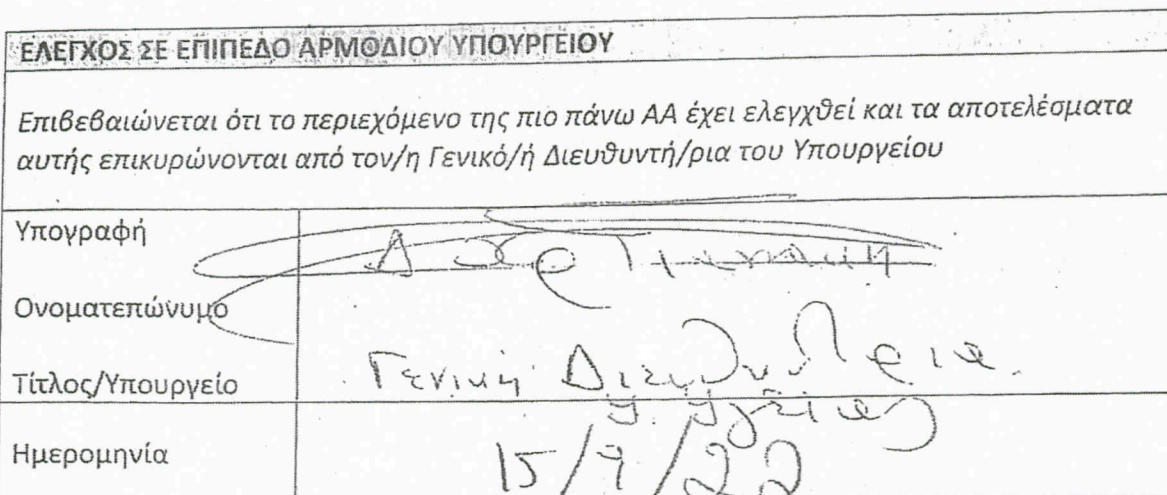 ΕΛΕΓΧΟΣ ΣΕ ΕΠΙΠΕΔΟ ΑΡΜΟΔΙΟΥ ΥΠΟΥΡΓΕΙΟΥ
Επιβεβαιώνεται ότι το περιεχόμενο της πιο πάνω ΑΑ έχει ελεγχθεί και τα αποτελέσματα
αυτής επικυρώνονται από τον/η Γενικό/ή Διευθυντή/ρια του Υπουργείου
Υπογραφή
Ονοματεπώνυμο
Τίτλος/Υπουργείο Γενική Διευθύντρια
Υ. Υγείας
Ημερομηνία 15/9/22